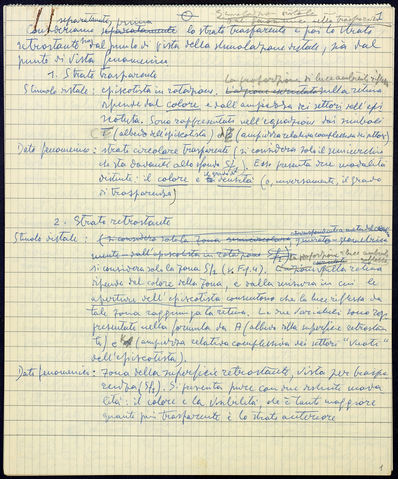 separatamente, prima
Consideriamo lo strato trasparente e poi lo strato
retrostante, sia dal punto di vista della stimolazione distale, sia dal
punto di vista fenomenico
1. Strato trasparente
La proporzione di luce ambiente riflessa
Stimolo distale: episcotista in rotazione. sulla retina
dipende dal colore e dall'ampiezza dei settori dell'epi
scotista. Sono rappresentati nell'equazione dai simboli
(albedo dell'episcotista) e (ampiezza relativa complessiva dei settori)
Dato fenomenico: strato circolare trasparente (si considera solo il semicerchio
che sta davanti allo sfondo). Esso presenta due modalità
distinte: il colore e la densità (o, inversamente, il grado
di trasparenza)
2. Strato retrostante
Stimolo distale: (si considera solo la zona
mente dall'episcotista in rotazione
si considera solo la zona (v. Fig. 4). sulla retina
dipende dal colore della zona, e dalla misura in cui le
aperture dell'episcotista consentono che la luce riflessa da
tale zona raggiunga la retina. Le due variabili sono rap
presentate nella formula da A (albedo della superficie retrostan
te) e (ampiezza relativa complessiva dei settori "vuoti"
dell'episcotista).
Dato fenomenico: zona della superficie retrostante, vista per traspa
renza. Si presenta pure con due distinte moda
lità: il colore e la visibilità che è tanto maggiore
quanto più trasparente è lo strato anteriore
1